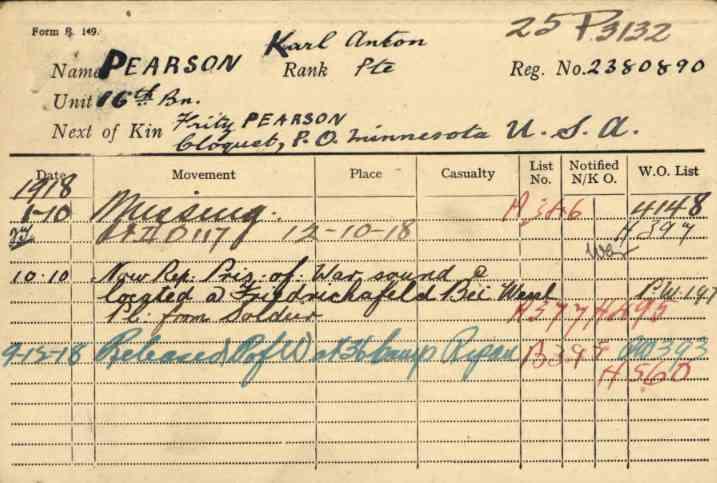 Form B. 149.
25 P3132
Karl Anton
Name PEARSON Rank Pte Reg. No. 2380890
Unit 16th Bn.
Next of Kin Fritz PEARSON
Cloquet, P.O. Minnesota U.S.A.
Date Movement Place Casualty List No. Notified N/K O. W.O. List
1918
1-10 Missing. A346 4148
12-10-18 H397
10.10 Now Rep. Pris. of War, sound &
located @ Friedrichsfeld Bei Wesel P.W. 197
P.C. from Soldier H577, H495
9-12-18 Released P of W at Camp Ripon B397
H560